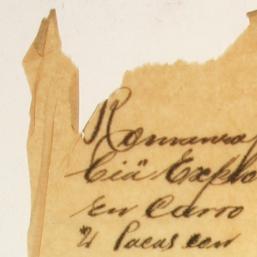 Romansa
Ciä Explo
en Carro
21 Pacas con